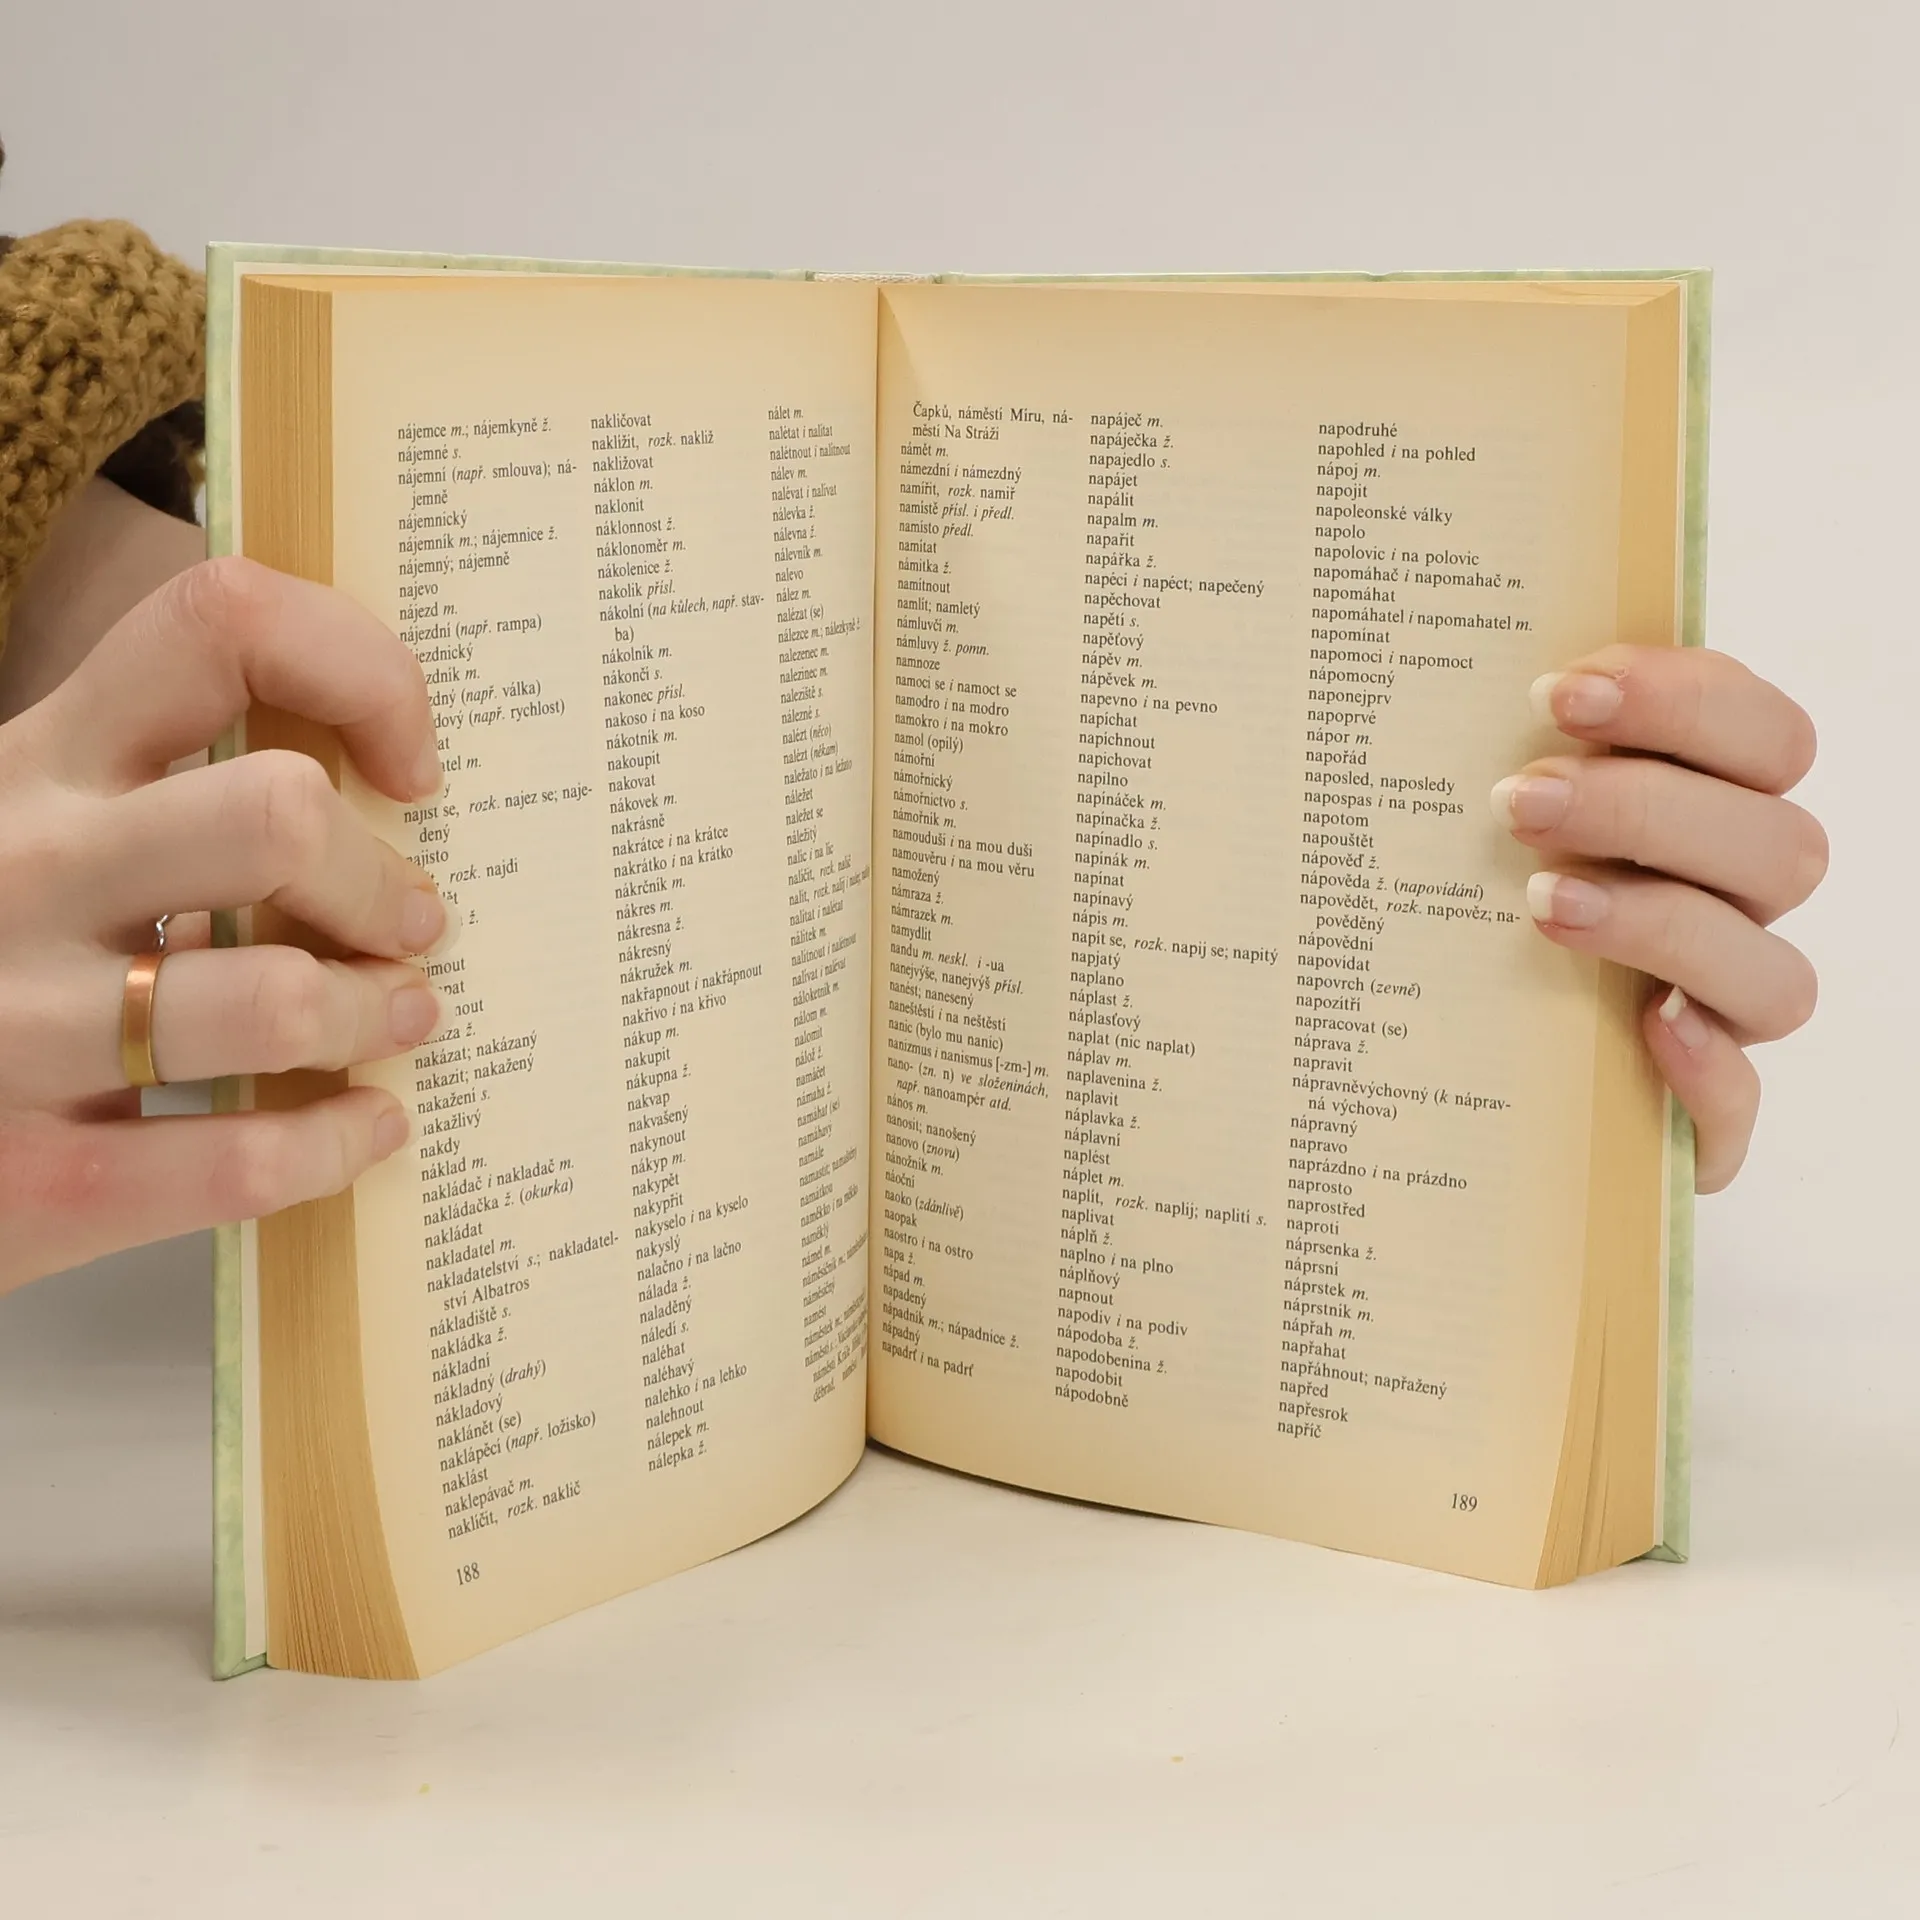 nájemce m.; nájemkyně ž.
nájemné s.
nájemní (např. smlouva); ná-
jemně
nájemnický
nájemník m.; nájemnice ž.
nájemný; nájemně
najevo
nájezd m.
nájezdní (např. rampa)
m.
(např. válka)
(např. rychlost)
m.
najíst se, rozk. najez se; naje-
dený
najisto
rozk. najdi
ž.
ž.
nakázat; nakázaný
nakazit; nakažený
nakažení s.
nakažlivý
nakdy
náklad m.
nakládač i nakladač m.
nakládačka ž. (okurka)
nakládat
nakladatel m.
nakladatelství s.; nakladatel-
ství Albatros
nákladiště s.
nakládka ž.
nákladní
nákladný (drahý)
nákladový
naklánět (se)
naklápěcí (např. ložisko)
naklást
naklepávač m.
naklíčit, rozk. naklič
188
nakličovat
naklížit, rozk. nakliž
nakližovat
náklon m.
naklonit
náklonnost ž.
náklonoměr m.
nákolenice ž.
nakolik přísl.
nákolní (na kůlech, např. stav-
ba)
nákolník m.
nákončí s.
nakonec přísl.
nakoso i na koso
nákotník m.
nakoupit
nakovat
nákovek m.
nakrásně
nakrátce i na krátce
nakrátko i na krátko
nákrčník m.
nákres m.
nákresna ž.
nákresný
nákružek m.
nakřapnout i nakřápnout
nakřivo i na křivo
nákup m.
nakupit
nákupna ž.
nakvap
nakvašený
nakynout
nákyp m.
nakypět
nakypřit
nakyselo i na kyselo
nakyslý
nalačno i na lačno
nálada ž.
naladěný
náledí s.
naléhat
naléhavý
nalehko i na lehko
nalehnout
nálepek m.
nálepka ž.
nálet m.
nalétat i nalítat
nalétnout i nalítnout
nálev m.
nalévat i nalívat
nálevka ž.
nálevna ž.
nálevník m.
nalevo
nález m.
nalézat (se)
nálezce m.; nálezkyně ž.
nalezenec m.
nalezinec m.
naleziště s.
nálezné s.
nalézt (něco)
nalézt (někam)
naležato i na ležato
náležet
naležet se
náležitý
nalíc i na líc
nalíčit, rozk. nalič
nalít, rozk.
nalítat i nalétat
nálitek m.
nalítnout i nalétnout
nalívat i nalévat
náloketník m.
nálom m.
nalomit
nálož ž.
namáčet
námaha ž.
namáhat (se)
namáhavý
namále
namastit; namaštěný
namátkou
naměkko i na měkko
naměklý
námel m.
náměsíčník m.;
náměsíčný
namést
náměstek m.;
náměstí s.;
náměstí
Čapků, náměstí Míru, ná-
městí Na Stráži
námět m.
námezdní i námezdný
namířit, rozk. namiř
namístě přísl. i předl.
namísto předl.
namítat
námitka ž.
namítnout
namlít; namletý
námluvčí m.
námluvy ž. pomn.
namnoze
namoci se i namoct se
namodro i na modro
namokro i na mokro
namol (opilý)
námořní
námořnický
námořnictvo s.
námořník m.
namouduši i na mou duši
namouvěru i na mou věru
namožený
námraza ž.
námrazek m.
namydlit
nandu m. neskl. i -ua
nanejvýše, nanejvýš přísl.
nanést; nanesený
naneštěstí i na neštěstí
nanic (bylo mu nanic)
nanizmus i nanismus [-zm-] m.
nano- (zn. n) ve složeninách,
např. nanoampér atd.
nános m.
nanosit; nanošený
nanovo (znovu)
nánožník m.
náoční
naoko (zdánlivě)
naopak
naostro i na ostro
napa ž.
nápad m.
napadený
nápadník m.; nápadnice ž.
nápadný
napadrť i na padrť
napáječ m.
napáječka ž.
napajedlo s.
napájet
napálit
napalm m.
napařit
napářka ž.
napéci i napéct; napečený
napěchovat
napětí s.
napěťový
nápěv m.
nápěvek m.
napevno i na pevno
napíchat
napíchnout
napichovat
napilno
napínáček m.
napínačka ž.
napínadlo s.
napínák m.
napínat
napínavý
nápis m.
napít se, rozk. napij se; napitý
napjatý
naplano
náplast ž.
náplasťový
naplat (nic naplat)
náplav m.
naplavenina ž.
naplavit
náplavka ž.
náplavní
naplést
náplet m.
naplít, rozk. naplij; naplití s.
naplivat
náplň ž.
naplno i na plno
náplňový
napnout
napodiv i na podiv
nápodoba ž.
napodobenina ž.
napodobit
nápodobně
napodruhé
napohled i na pohled
nápoj m.
napojit
napoleonské války
napolo
napolovic i na polovic
napomáhač i napomahač m.
napomáhat
napomáhatel i napomahatel m.
napomínat
napomoci i napomoct
nápomocný
naponejprv
napoprvé
nápor m.
napořád
naposled, naposledy
napospas i na pospas
napotom
napouštět
nápověď ž.
nápověda ž. (napovídání)
napovědět, rozk. napověz; na-
pověděný
nápovědní
napovídat
napovrch (zevně)
napozítří
napracovat (se)
náprava ž.
napravit
nápravněvýchovný (k náprav-
ná výchova)
nápravný
napravo
naprázdno i na prázdno
naprosto
naprostřed
naproti
náprsenka ž.
náprsní
náprstek m.
náprstník m.
nápřah m.
napřahat
napřáhnout; napřažený
napřed
napřesrok
napříč
189